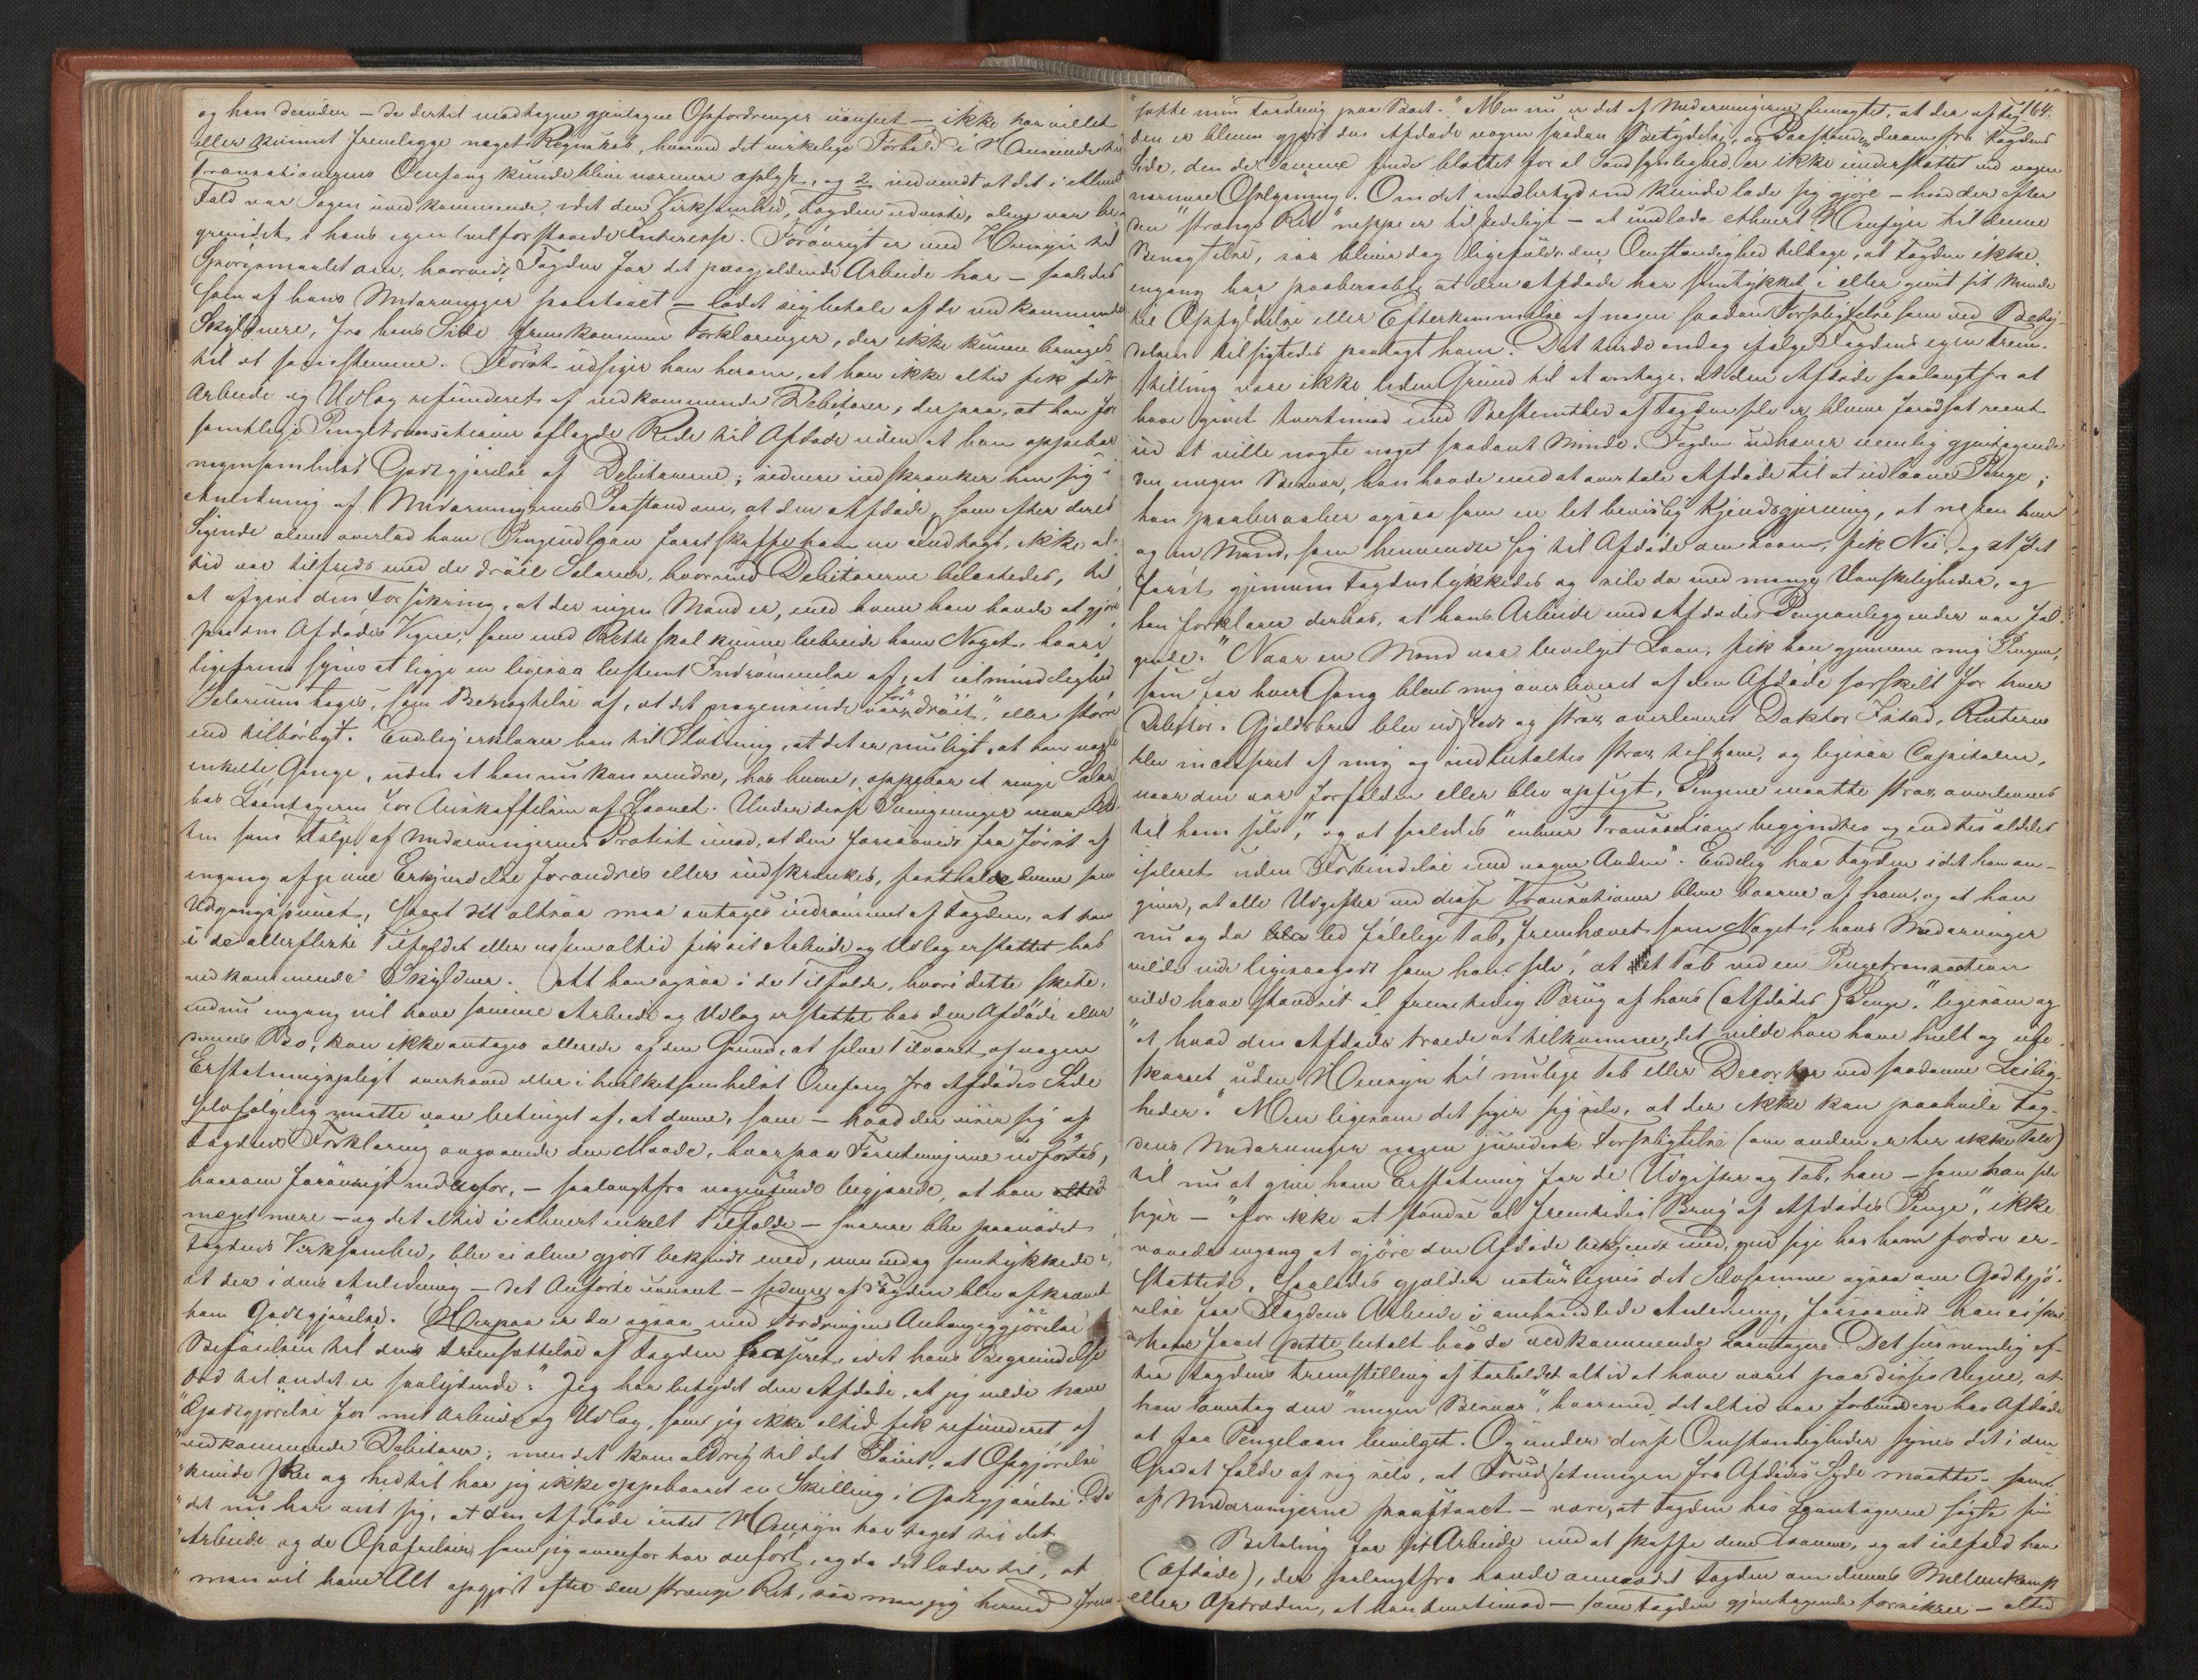 og han desuden – de dertil modtagne gjentagne Opfordringer uanseet – ikke har villet
eller kunnet fremlægge noget Regnskab, hvorved det virkelige Forhold i Henseende til
Transactionens Omfang kunde blive nærmere oplyst, og 2 indvendt at det i ethvert
Fald var Sagen uvedkommende, idet den Virksomhed, Fagden udviste, alene var be-
grundet i hans egen velforstaaede Interesse. Forøvrigt er med Hensyn til
Spørgsmaalet om, hvorvidt Fagden for det paagjældende Arbeide har – saaledes
som af hans Modarvinger paastaaet – ladet sig betale af de vedkommende
Skyldnere, fra hans Side fremkommen Forklaringer, der ikke kunne bringes
til at samstemme. Først udsiger han herom, at han ikke altid fik sit
Arbeide og Udlæg refunderet af vedkommende Debitorer, derpaa, at han for
samtlige Pengetransactioner aflagde Rede til Afdøde uden at han oppebar
nogensomhelst Godtgjørelse af Debitorerne; sidenere indskrænker han sig i
Anledning af Modarvingernes Paastand om, at den Afdøde, som efter deres
Sigende alene overlod ham Pengeudlaan for at skaffe ham en Indtægt, ikke al-
tid var tilfreds med de drøie Salarier, hvormed Debitorerne belastedes, til
at afgive den Forsikring, at der ingen Mand er, med hvem han havde at gjøre
paa den Afdødes Vegne, som med Rette skal kunne bebreide ham Noget, hvori
ligefrem synes at ligge en ligesaa bestemt Indrømmelse af, at i almindelighed
Salarium toges, som Benægtelse af, at det nogensinde var for "drøit", eller større
end tilbørligt. Endelig erklærer han til Slutning, at det er muligt, at han nogle
enkelte Gange, uden at han nu kan erindre, hos hvem, oppebar et ringe Salær
hos Laantageren for Anskaffelsen af Laanet. Under disse Svingninger maa Ret-
ten som Følge af Modarvingernes Protest imod, at den forsaavidt fra først af
engang afgivne Erkjendelse forandres eller indskrænkes, fastholde denne som
Udgangspunct, saa at det altsaa maa antages indrømmet af Fagden, at han
i de allerfleste Tilfælde eller næsten altid fik sit Arbeide og Udlæg erstattet hos
vedkommende Skyldner. At han ogsaa i de Tilfælde, hvori dette skete,
endnu engang vil have samme Arbeide og Udlæg erstattet hos den Afdøde eller
dennes Bo, kan ikke antages allerede af den Grund, at selve Tilværet af nogen
Erstatningspligt overhoved eller i hvilketsomhelst Omfang fra Afdødes Side
selvfølgelig maatte være betinget af, at denne, som – hvad der viser sig af
Fagdens Forklaring angaaende den Maade, hvorpaa Forretningerne udførtes,
hvorom forøvrigt nedenfor, – saalangtfra nogensinde begjærede, at han
meget mere – og det altid i ethvert enkelt Tilfælde – snarere blev paanødet
Fagdens Virksomhed, blev ei alene gjort bekjendt med, men endog samtykkede i,
at der i dens Anledning – det Anførte uanseet – sidenere af Fagden blev afkrævet
ham Godtgjørelse. Herpaa er da ogsaa ved Fordringens Anhængiggjørelse
Beføielsen til dens Fremsættelse af Fagden baseret, idet hans Begrundelse
Ord til andet er saalydende: "Jeg har betydet den Afdøde, at jeg vilde have
"Godtgjørelse for mit Arbeide og Udlæg, som jeg ikke altid fik refunderet af
"vedkommende Debitorer; men det kom aldrig til det Point, at Opgjørelse
"kunde skee og hidtil har jeg ikke oppebaaret en Skilling i Godtgjørelse. Da
"det nu har viist sig, at den Afdøde intet Hensyn har taget til det
"Arbeide og de Opofrelser, som jeg ovenfor har anført, og da det lader til, at
"man vil have Alt opgjort efter den strænge Ret, saa maa jeg herved frem-
164.
"sætte min Fordring paa Boet." Men nu er det af Modarvingerne benægtet, at der af Fag-
den er bleven gjort den Afdøde nogen saadan Betydelse, og Paastanden derom fra Fagdens
Side, den de Samme finde blottet for al Sandsynlighed er ikke understøttet ved nogen
nærmere Oplysning. Om det imidlertid end kunde lade sig gjøre – hvad der efter
den "strænge Ret" neppe er tilstedeligt – at undlade ethvert Hensyn til denne
Benægtelse, saa bliver dog ligefuldt den Omstændighed tilbage, at Fagden ikke
engang har paaberaabt, at den Afdøde har samtykket i eller givet sit Minde
til Opfyldelse eller Efterkommelse af nogen saadan Forpligtelse som ved Bety-
delsen tilsigtedes paalagt ham. Det turde endog ifølge Fagdens egen Frem-
stilling være ikke uden Grund til at antage, at den Afdøde saalangtfra at
have givet tvertimod med Bestemthed af Fagden selv er bleven forudsat reent
ud at ville nægte noget saadant Minde. Fagden udhæver nemlig gjentagende
den megen Besvær, han havde med at overtale Afdøde til at udlaane Penge;
han paaberaaber ogsaa som en let bevislig Kjendsgjerning, at næsten hver
og en Mand, som henvendte sig til Afdøde om Laan, fik Nei, og at det
først gjennem Fagden lykkedes og selv da med mange Vanskeligheder, og
han forklarer derhos, at hans Arbeide med Afdødes Pengeanliggender var føl-
gende: "Naar en Mand var bevilget Laan, fik han gjennem mig Pengene,
som for hver Gang blev mig overleveret af den Afdøde særskilt for hver
Debitor. Gjældsbrev blev udstedt og strax overleveret Doktor Fstad, Renterne
blev incasseret af mig og indbetaltes strax til ham, og ligesaa Capitalen,
naar den var forfalden eller blev opsagt, Pengene maatte strax overleveres
til ham selv", og at saaledes "enhver Transaction begyndtes og endtes aldeles
isoleret uden Forbindelse med nogen Anden". Endelig har Fagden idet han an-
giver, at alle Udgifter ved disse Transactioner bleve baarne af ham, og at han
nu og da led følelige Tab, fremhævet som Noget, hans Modarvinger
vilde vide ligesaagodt som han selv, at "et Tab ved en Pengetransaction
vilde have standset al fremtidig Brug af hans (Afdødes) Penge," ligesom og
"at hvad den Afdøde troede at tilkomme, det vilde han have heelt og ube-
skaaret uden Hensyn til mulige Tab eller Decorter ved saadanne Leilig-
heder." Men ligesom det siger sig selv, at der ikke kan paahvile Fag-
dens Modarvinger nogen juridisk Forpligtelse (om anden er her ikke Tale)
til nu at give ham Erstatning for de Udgifter og Tab, han – som han selv
siger – "for ikke at standse al fremtidig Brug af Afdødes Penge", ikke
vovede engang at gjøre den Afdøde bekjendt med, end sige hos ham fordre er-
stattede, saaledes gjælder naturligviis det Selvsamme ogsaa om Godtgjø-
relse for Fagdens Arbeide i omhandlede Anledning, forsaavidt han ei skul-
de have faaet dette betalt hos de vedkommende Laantagere. Det sees nemlig ef-
ter Fagdens Fremstilling af Forholdet altid at have været paa disses Vegne, at
han overtog den "megen Besvær", hvormed det altid var forbunden hos Afdøde
at faa Pengelaan bevilget. Og under disse Omstændigheder synes det i den
Grad at falde af sig selv, at Forudsætningen fra Afdødes Side maatte – som
af Modarvingerne paastaaet – være, at Fagden hos Laantagerne søgte sin
Betaling for sit Arbeide med at skaffe dem Laanene, og at ialfald han
(Afdøde), der saalangtfra havde anmodet Fagden om dennes Mellemkomst
eller Optræden, at han tvertimod – som Fagden gjentagende forsikrer – altid